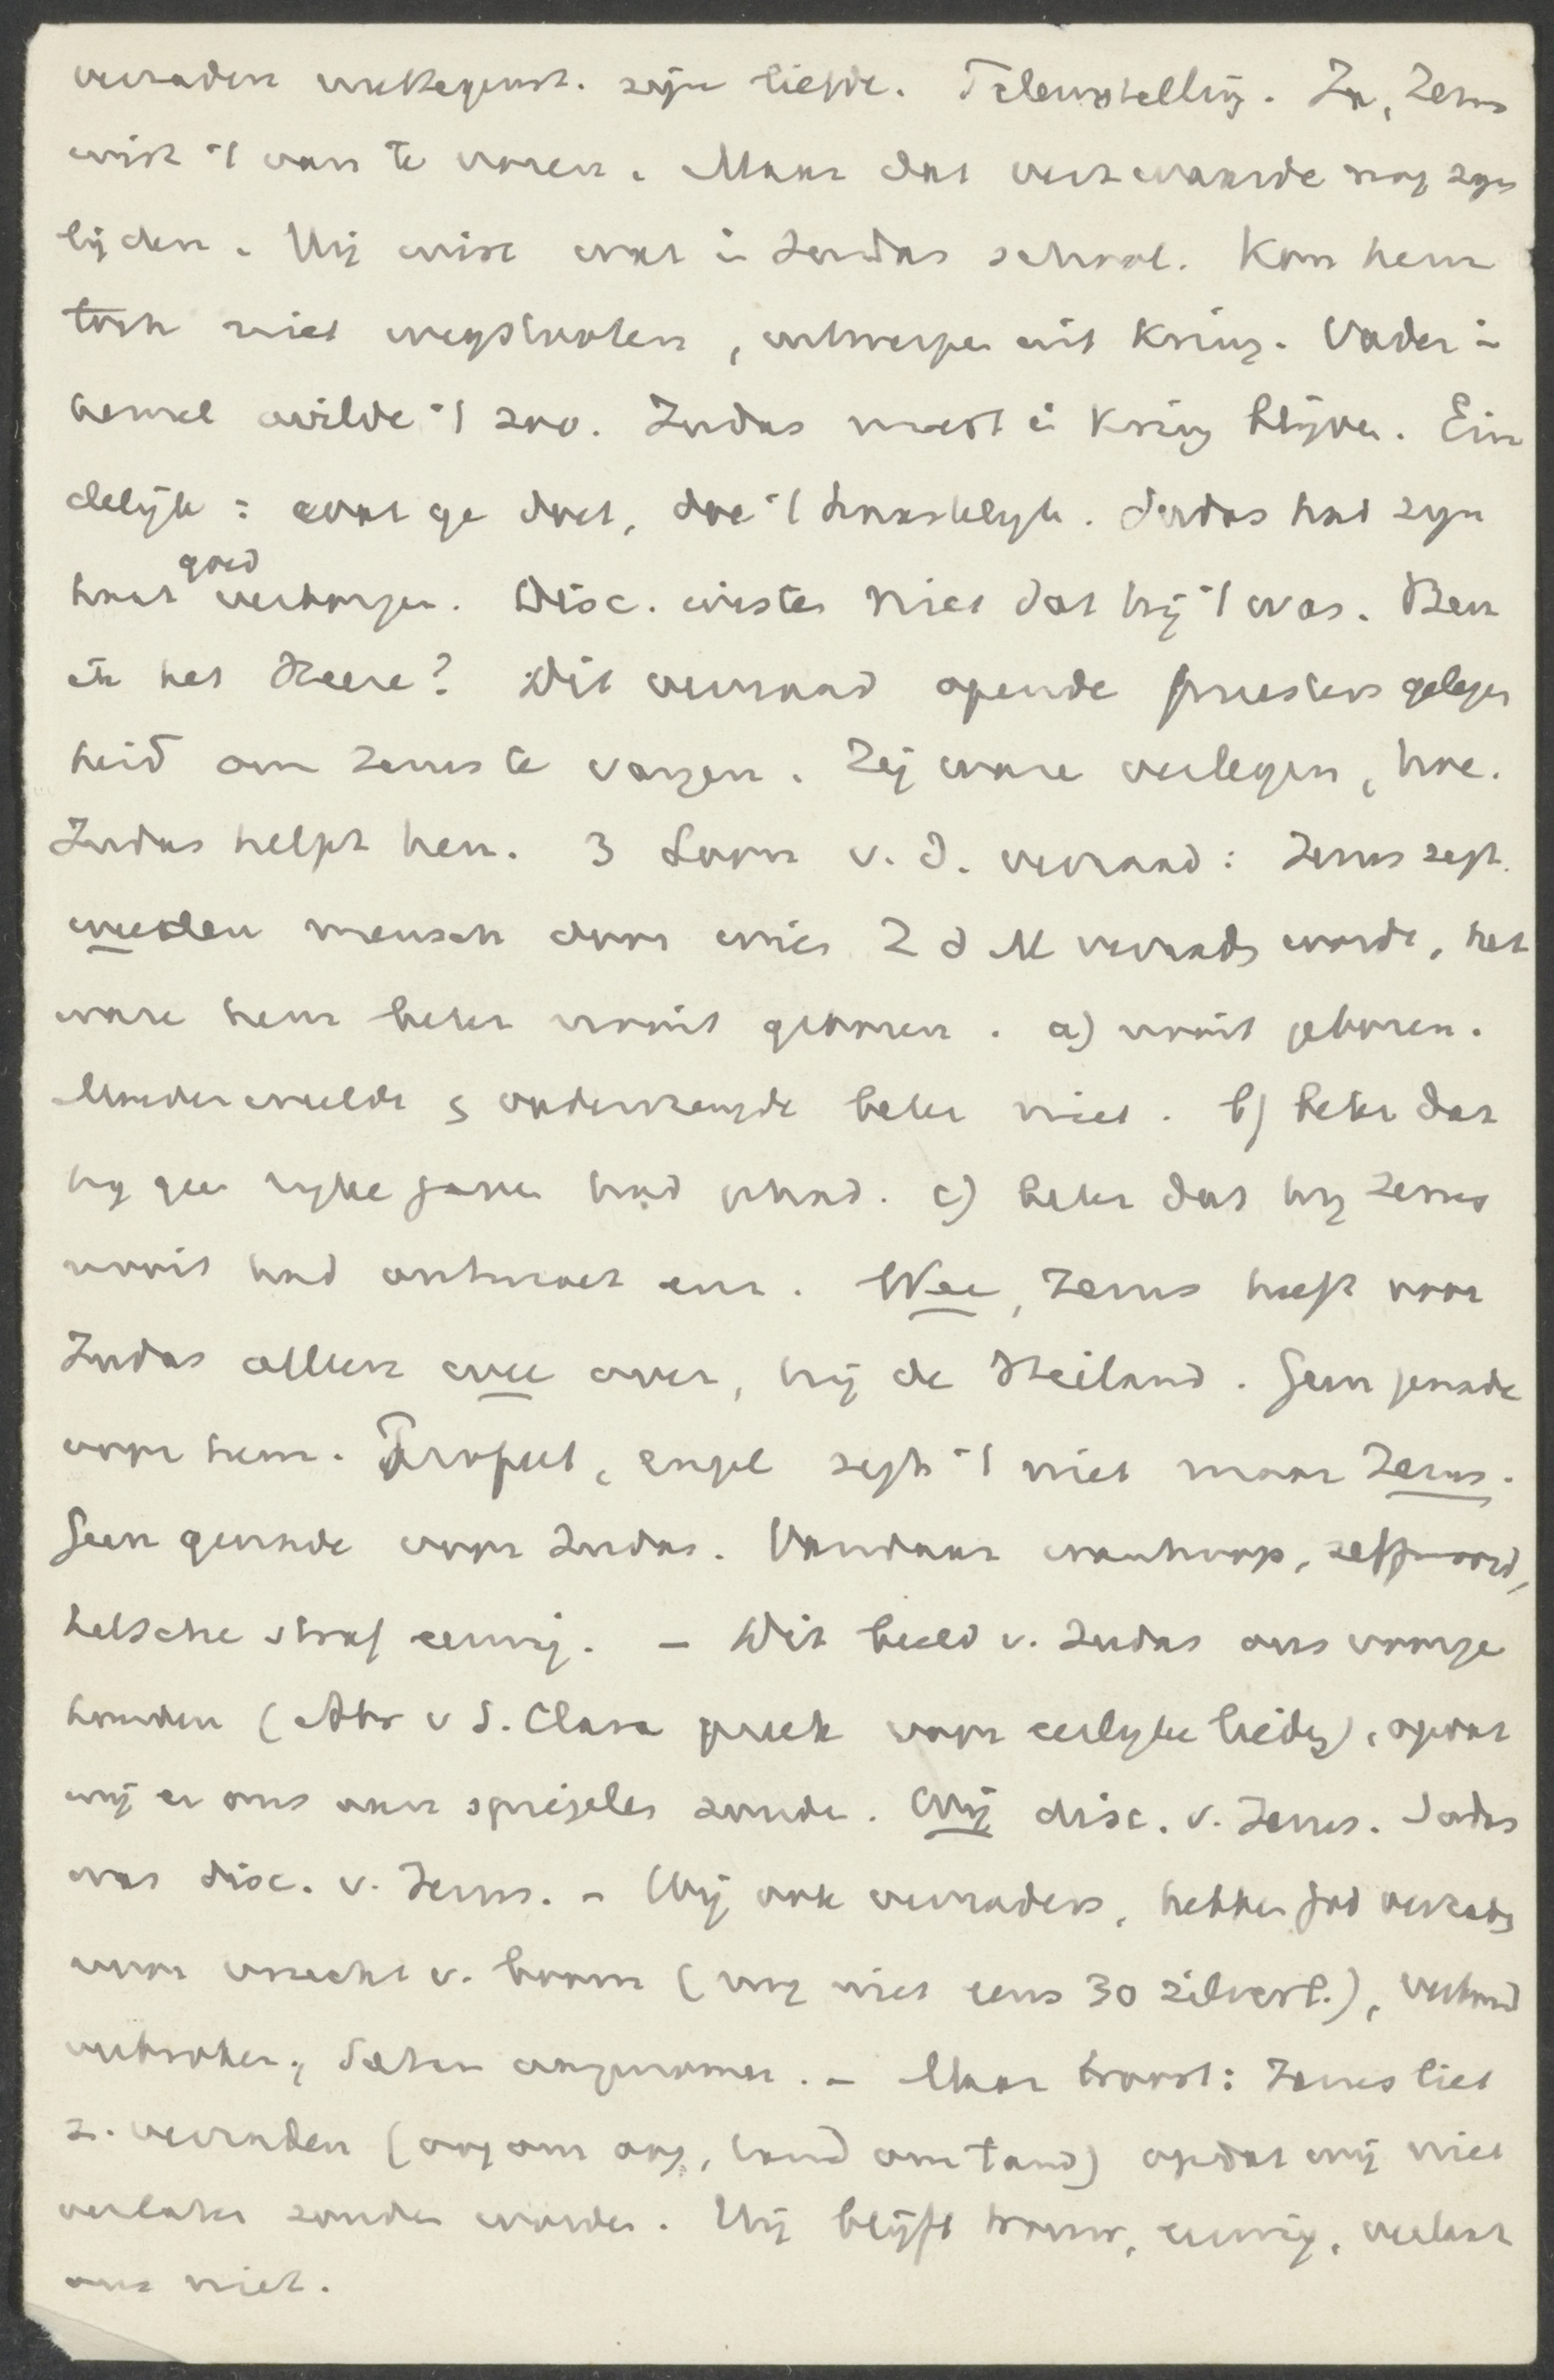 verraden niettegenst. zijn liefde. Teleurstelling. Ja, Jezus
wist 't van te voren. Maar dat verzwaarde nog zijn
lijden. Hij wist wat in Judas school. Kon hem
toch niet wegstooten, uitwerpen uit kring. Vader in
hemel wilde 't zoo. Judas moest in kring blijven. Ein
delijk: wat ge doet, doe 't haastelijk. Judas had zijn
haat goed verborgen. Disc. wisten niet dat hij 't was. Ben
ik het Heere? Dit verraad opende priesters gelegen
heid om Jezus te vangen. Zij ware verlegen, hoe.
Judas helpt hen. 3 Loon v. d. verraad: Jezus zegt
wee den mensch door wien Z d M verraden worde, het
ware hem beter nooit geboren. a) nooit geboren.
Moederweelde & vadervreugde beter niet. b) beter dat
hij geen rijke gaven had gehad. c) beter dat hij Jezus
nooit had ontmoet enz. Wee, Jezus heeft voor
Judas alleen wee over, hij de Heiland. Geen genade
voor hem. Profeet, engel zegt 't niet maar Jezus.
Geen genade voor Judas. Vandaar wanhoop, zelfmoord,
helsche straf eeuwig. – Dit beeld v. Judas ons voorge
houden (Abr v S. Clara preek voor eerlijke lieden), opdat
wij er ons aan spiegelen zouden. Wij disc. v. Jezus. Judas
was disc. v. Jezus. – Wij ook verraders, hebben God verraden
voor vrucht v. boom (nog niet eens 30 zilverl.), verbond
verbroken, Satan aangenomen. – Maar troost: Jezus liet
z. verraden (oog om oog, tand om tand) opdat wij niet
verlaten zouden worden. Hij blijft trouw, eeuwig, verlaat
ons niet.